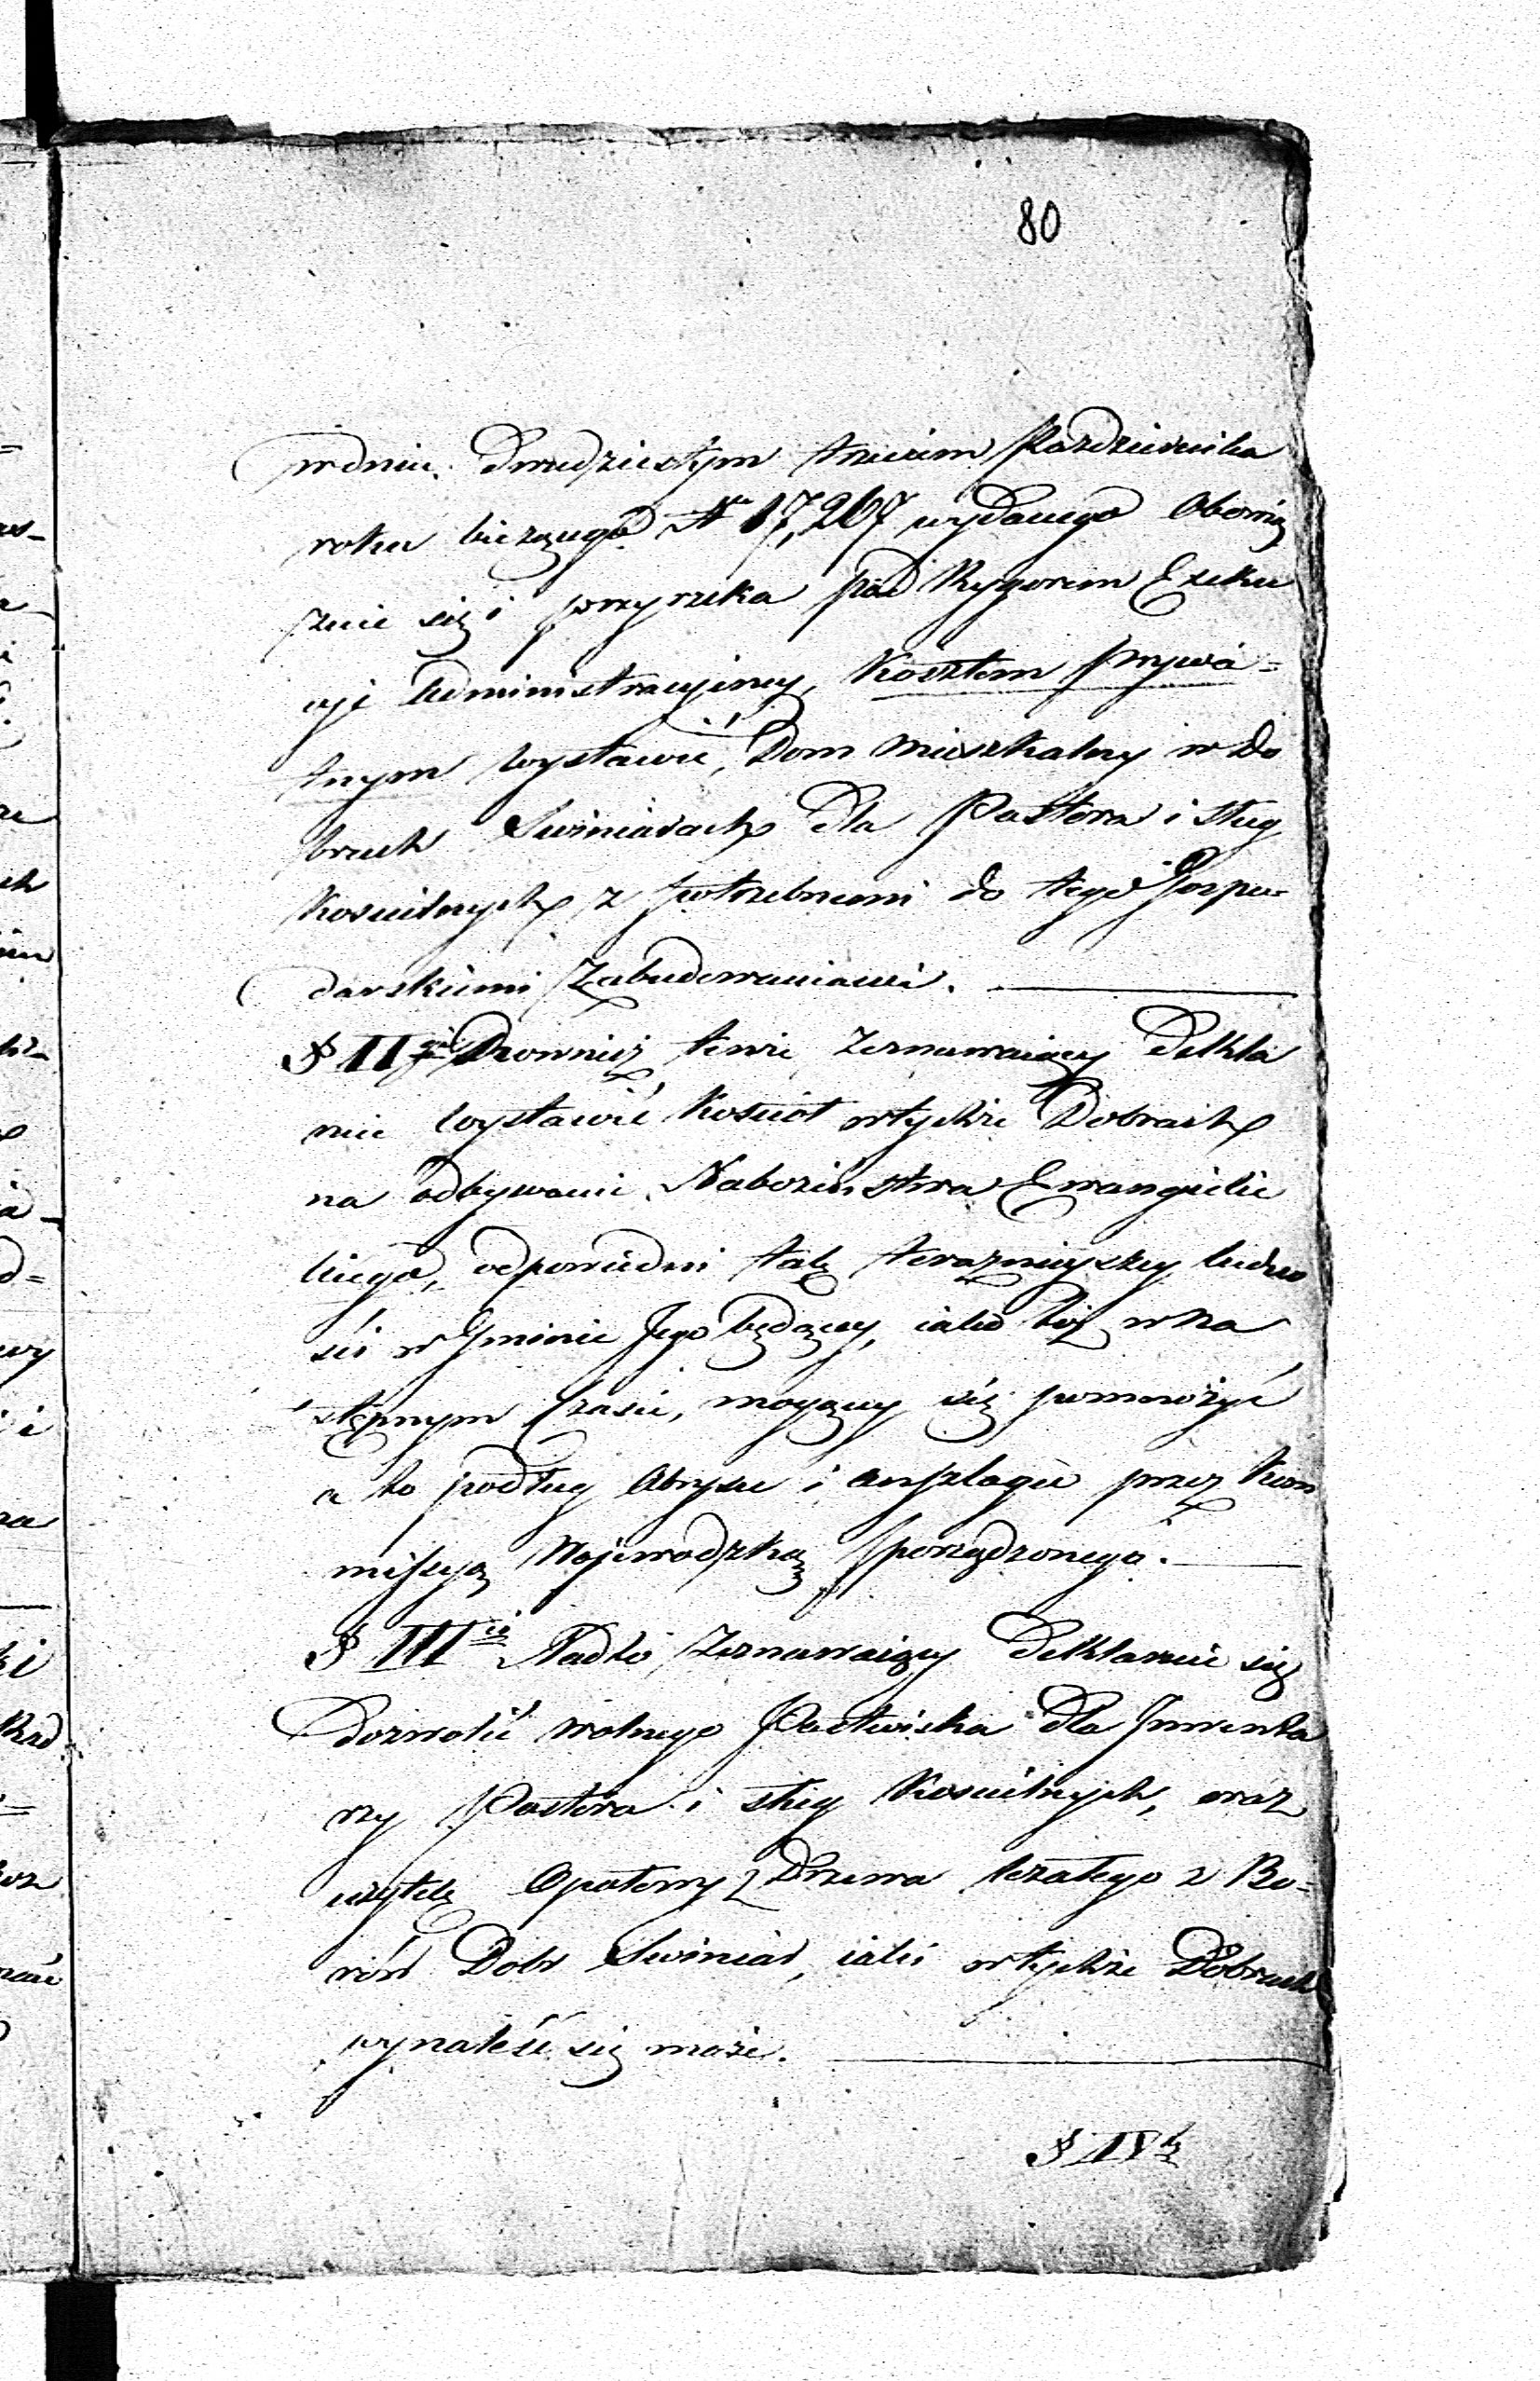 80
w dniu Dwudziestym trzecim Pazdziernika
roku bieżącego Nr 17,267 wydanego Obowią
zuie się i przyrzeka pod Rygorem Exeku
cyi Administracyiney, Kosztem prywa=
tnym wystawić, Dom Mieszkalny w Do
brach Swiniarach Dla Pastora i sług
Koscielnych z potrzebnemi do tego Gospo=
darskiemi Zabudowaniami.
§ II Rownież tenże Zeznawaiący Dekla
ruie Wystawić Kościoł w tychże Dobrach
na odbywanie Nabożenstwa Ewangielic
kiego, odpowiedni tak teraznieyszey ludno
ści w Gminie Jego będącey, iako też w na
stępnym Czasie, mogącey się pomnożyć
a to podług Abrysu i anszlagu przez Kom
missyą Wojewodzką sporządzonego.
§ III Nadto Zeznawaiący Deklaruie się
Dozwolić wolnego Pastwiska dla Inwenta
rzy Pastora i sług Koscielnych, oraz
użytek Opałowy z Drzewa leżałego z Bo=
rów Dobr Swiniar, iakie w tychże Dobrach
wynaleść się może.
§ IV